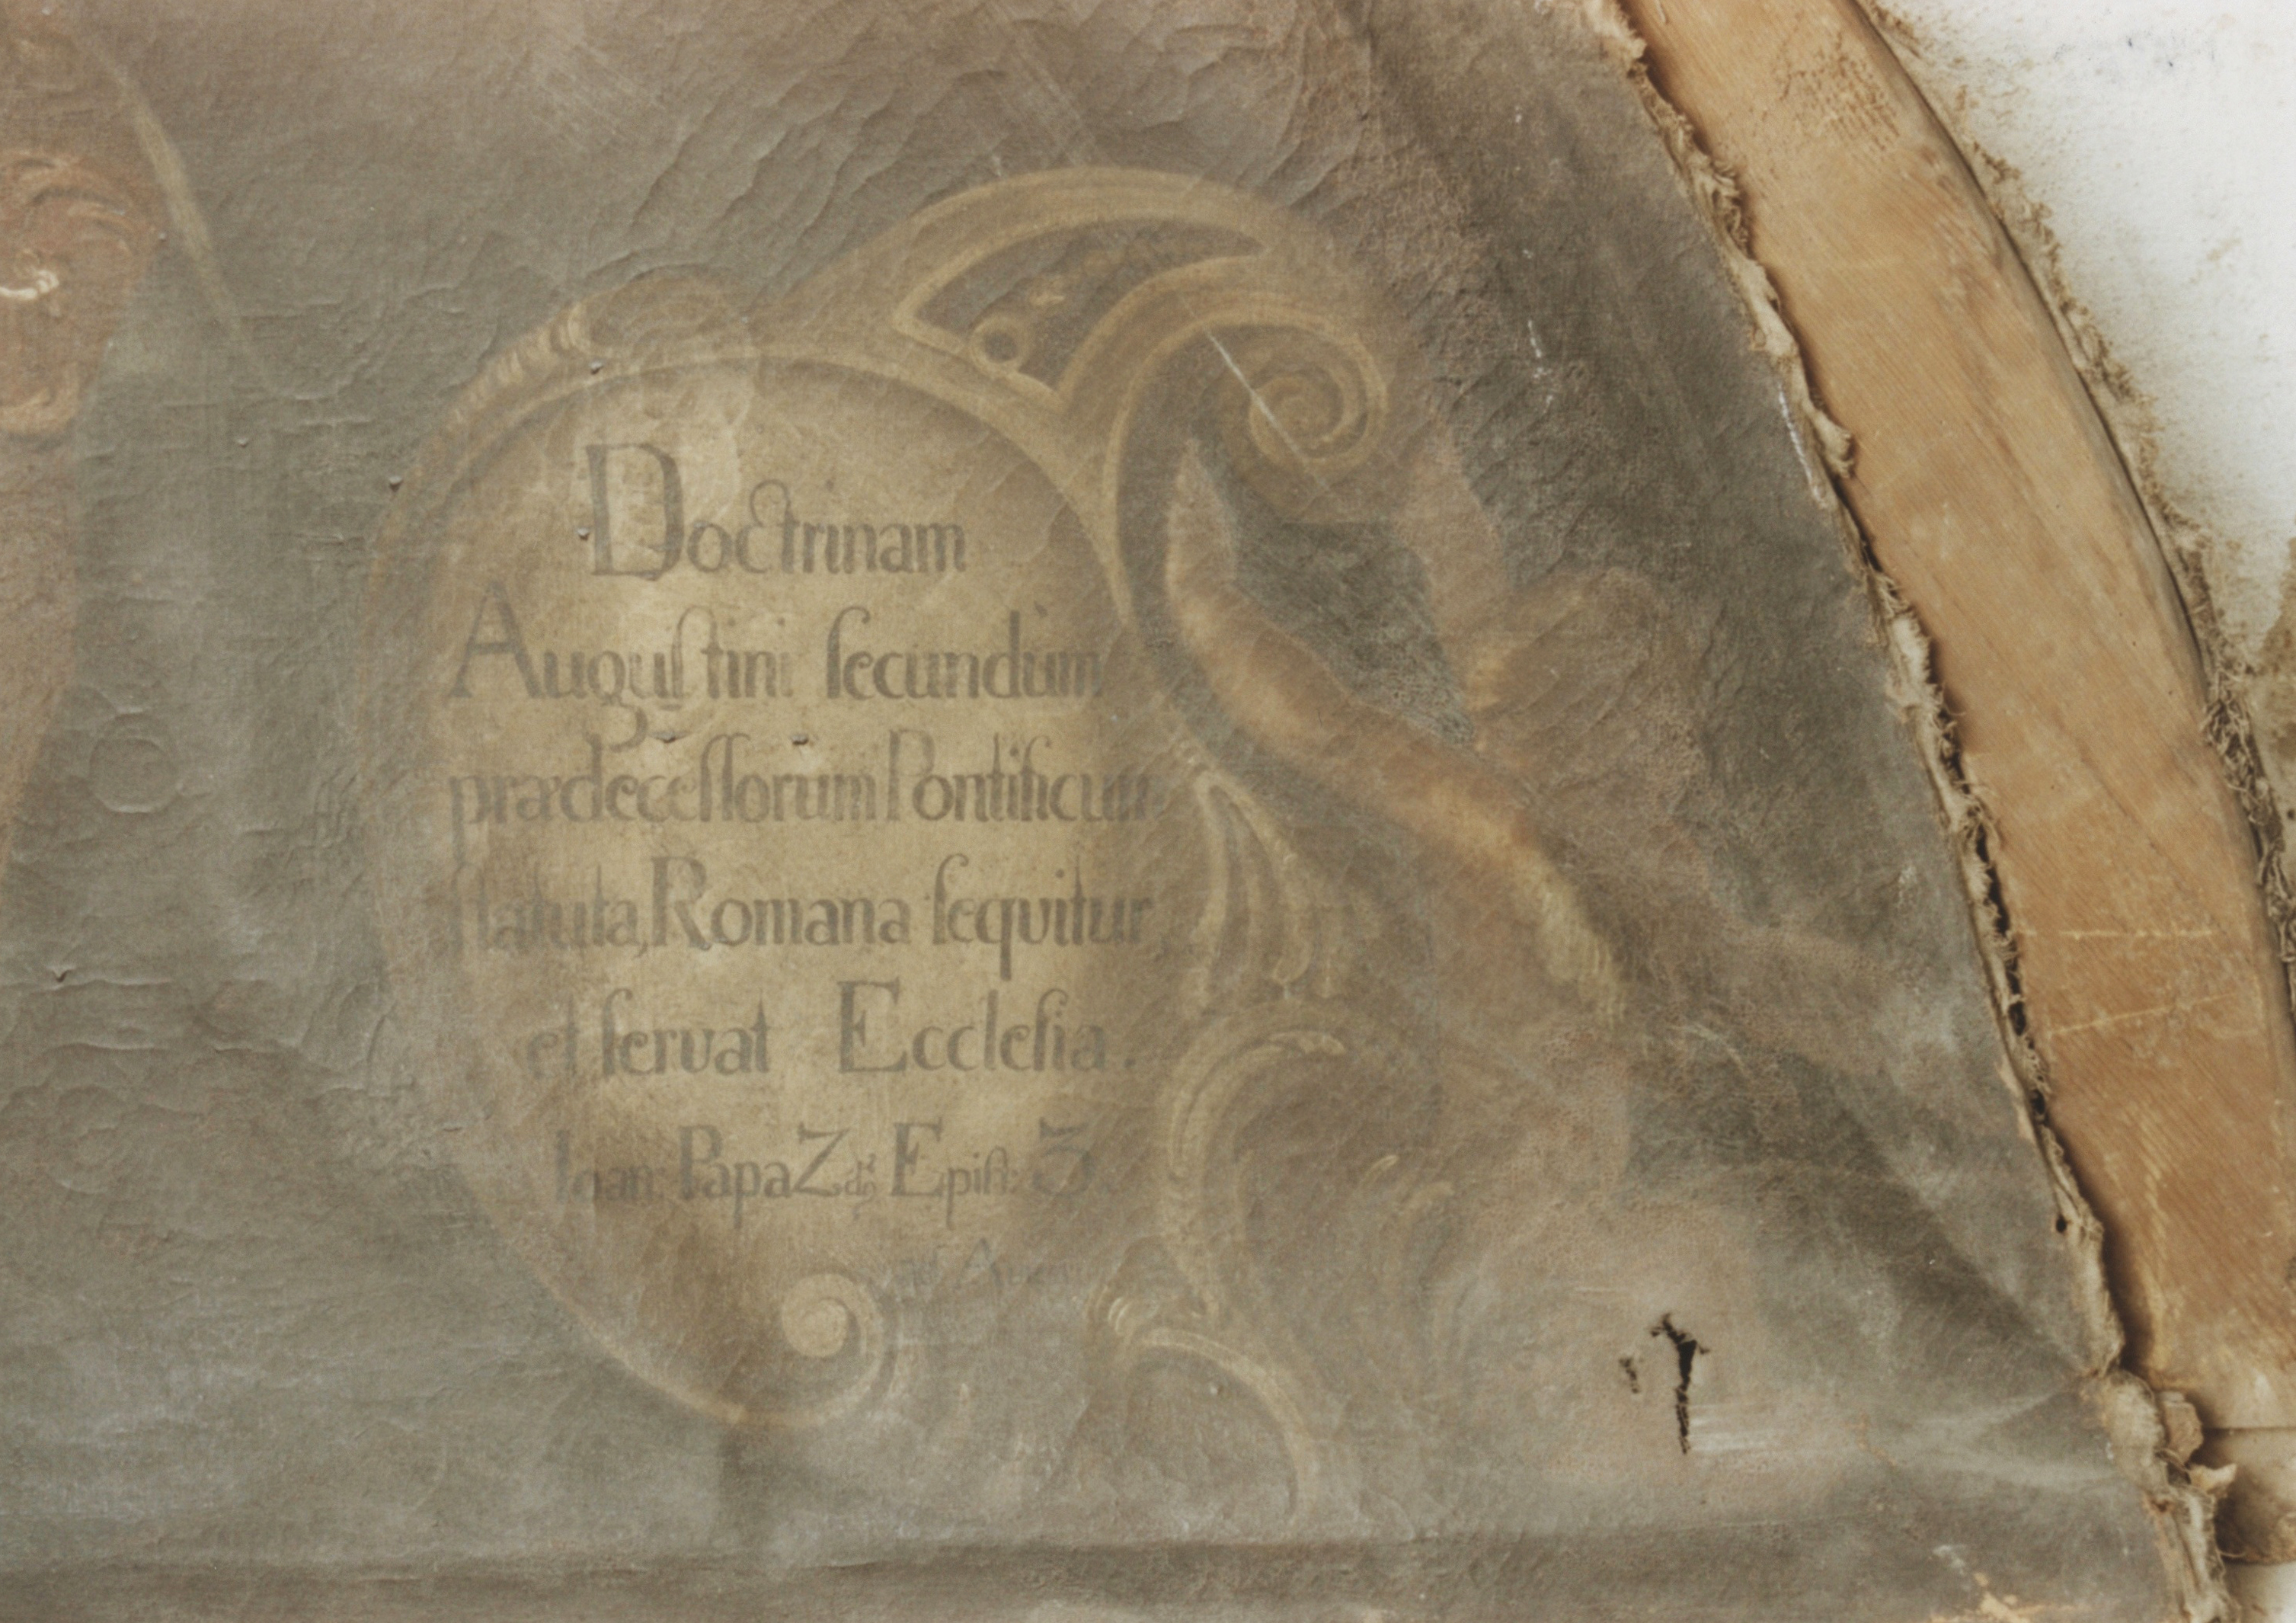 Doctrinam
Auguſtini ſecundùm
prædeceſſorum Pontificum
ſtatuta, Romana ſequitur
et ſeruat Eccleſia.
Ioan: Papa Z Epiſt: 3.